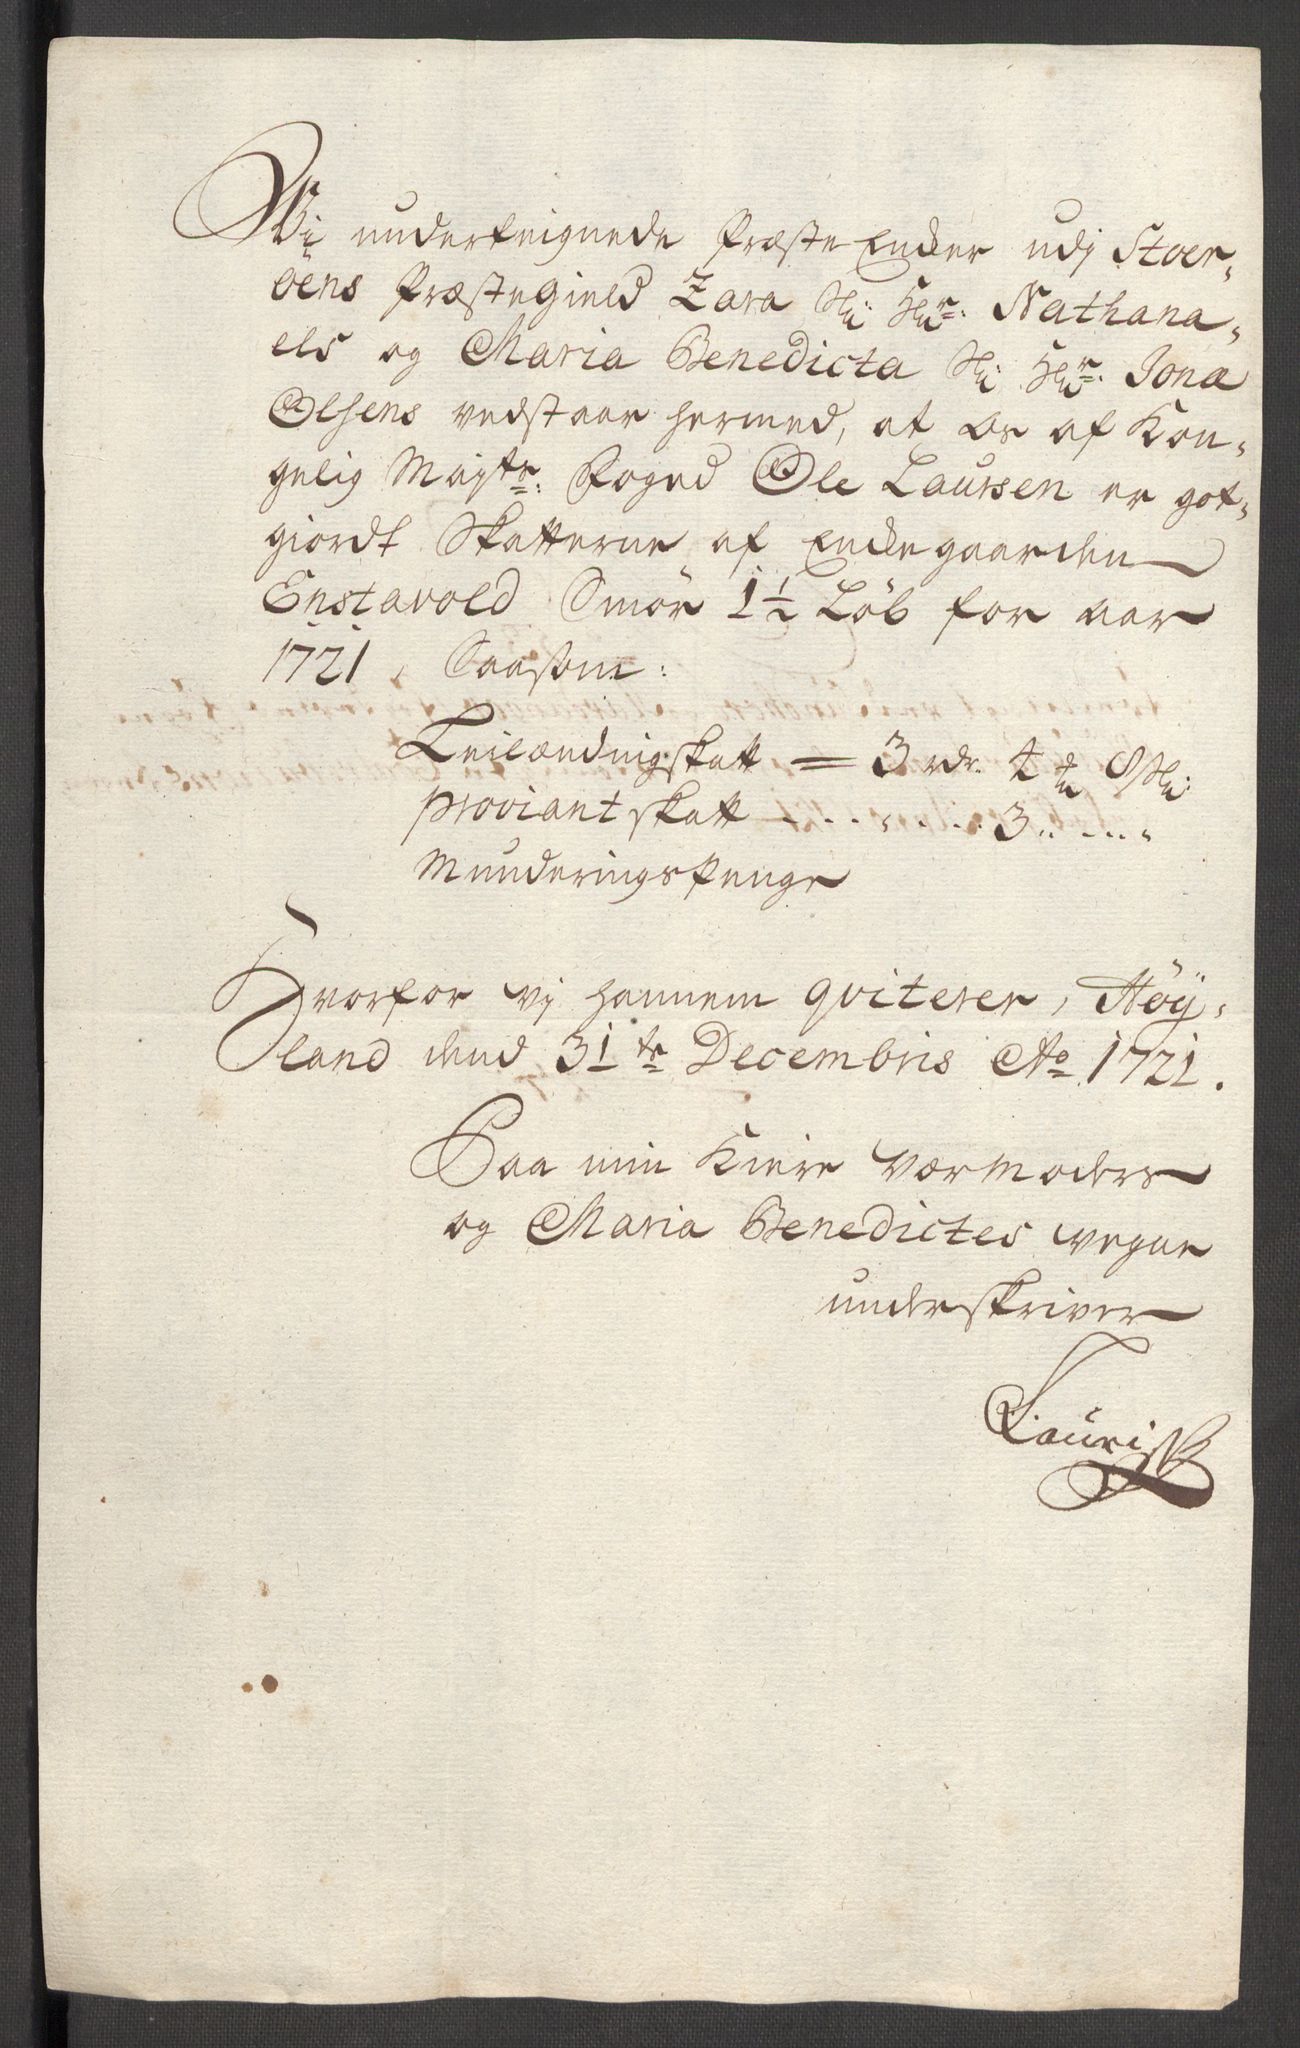 Wi underteignede Præste Encker udj Stoer,
öens Præstegield Zara Sl: Hr: Nathana,
els og Maria Benedicta Sl: Hr: Jona
Olsens vedstaar hermed, at os af Kon,
gelig Mayts: Foged Ole Laursen er got,
giordt Skatterne af Enckegaarden
Enstavold Smör 1½ Löb for aar
1721, Saasom:
Leilændingskatt = 3 rdr.
proviant skatt - - - - - - 3 -
Munderings Penge
Hvorfor vj hannem qviterer, Höÿ,
land dend 31te Decembris Ao 1721.
Paa min Kiere Værmoders
og Maria Benedictes vegne
underskriver